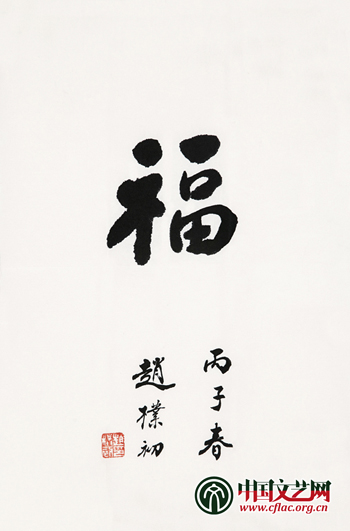 福
丙子春
趙樸初
中国文艺网
www.cflac.org.cn